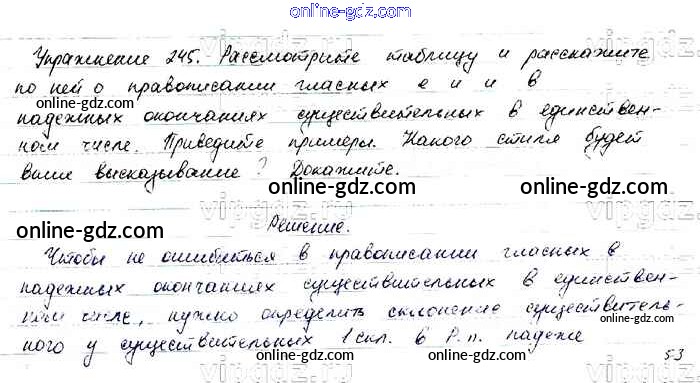 online-gdz.com
Упражнение 245. Рассмотрите таблицу и расскажите
по ней о правописании гласных е и и в
падежных окончаниях существительных в единствен-
ном числе. Приведите примеры. Какого стиля будет
ваше высказывание? Докажите.
online-gdz.com online-gdz.com
online-gdz.com
Решение.
Чтобы не ошибиться в правописании гласных в
падежных окончаниях существительных в единствен-
ном числе, нужно определить склонение существитель-
ного у существительных 1 скл. в Р.п. падеже
online-gdz.com
53